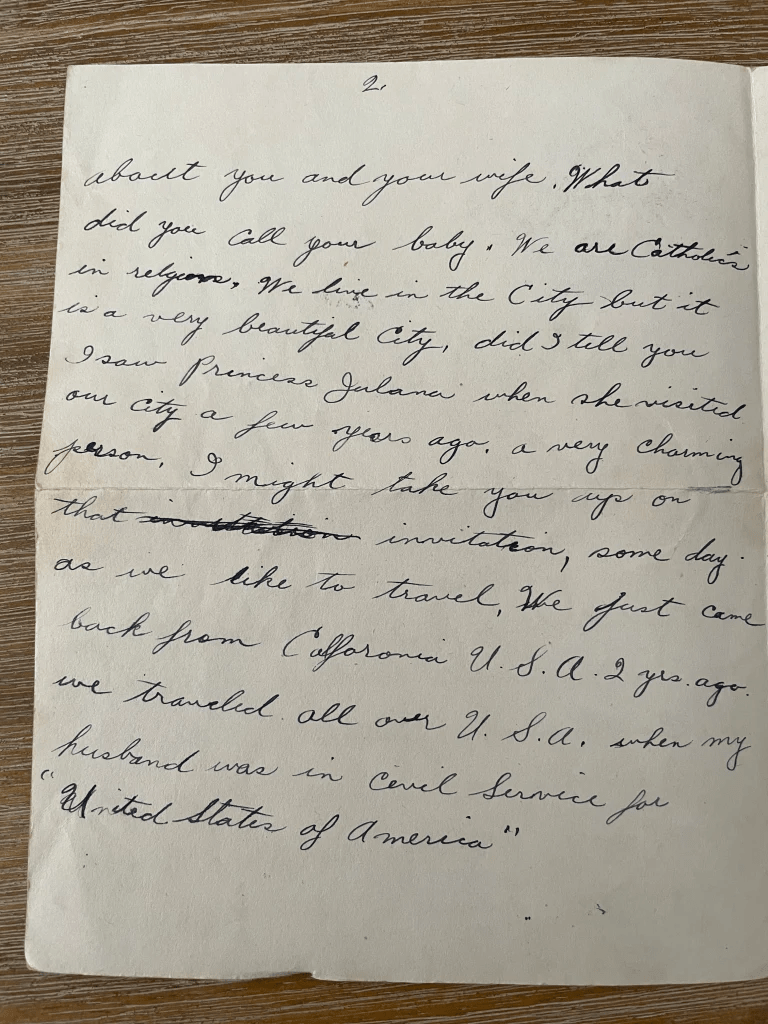 2.
about you and your wife. What
did you call your baby. We are Catholic's
in religions, We live in the City but it
is a very beautiful City, did I tell you
I saw Princess Julana when she visited
our city a few years ago. a very charming
person. I might take you up on
that invitation invitation, some day.
as we like to travel, We just came
back from Calfaronia U.S.A. 2 yrs. ago.
we traveled all over U.S.A. when my
husband was in Civil Service for
"United States of America"